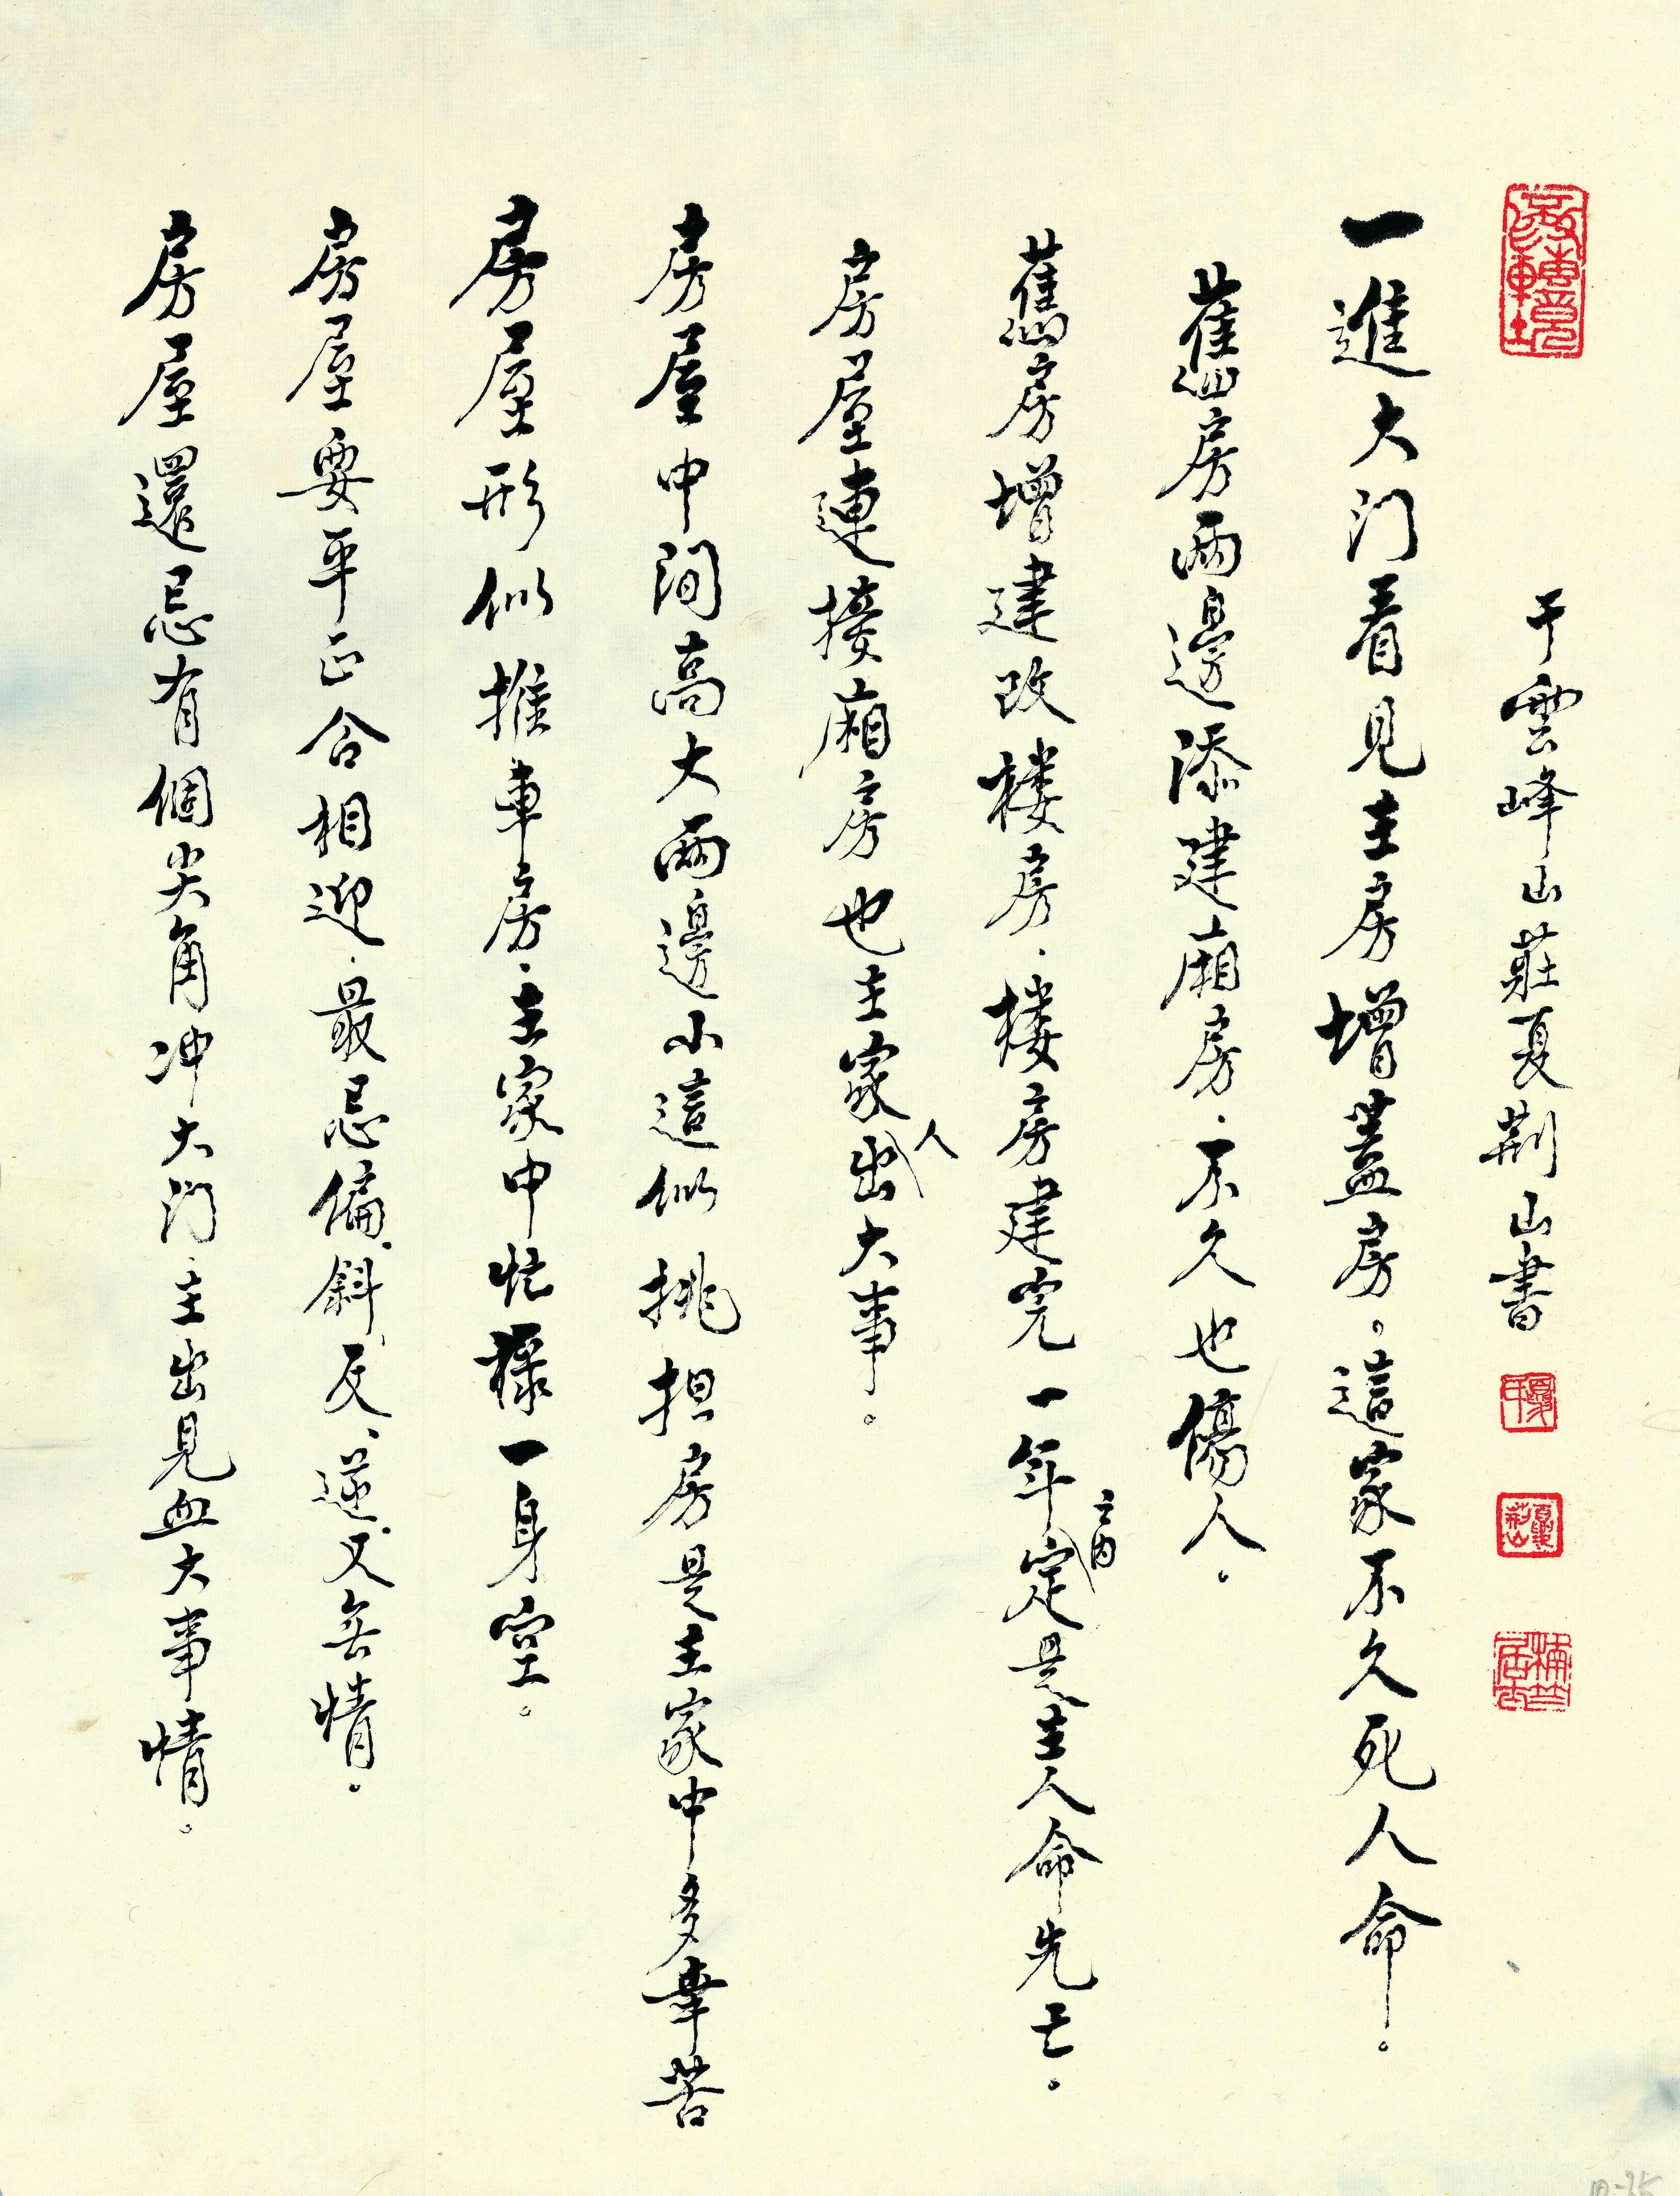 于雲峰山莊夏荆山書
一進大门看見主房增蓋房。這家不久死人命。
舊房兩邊添建廂房.不久也傷人。
舊房增建改楼房.楼房建完一年之内定是主人命先亡。
房屋連接廂房也主家人出大事。
房屋中间高大兩邊小這似挑担房是主家中多辛苦
房屋形似推車房.主家中忙碌一身空。
房屋要平正合相迎.最忌偏、斜、反、逆、又無情。
房屋還忌有個尖角冲大门主出見血大事情。